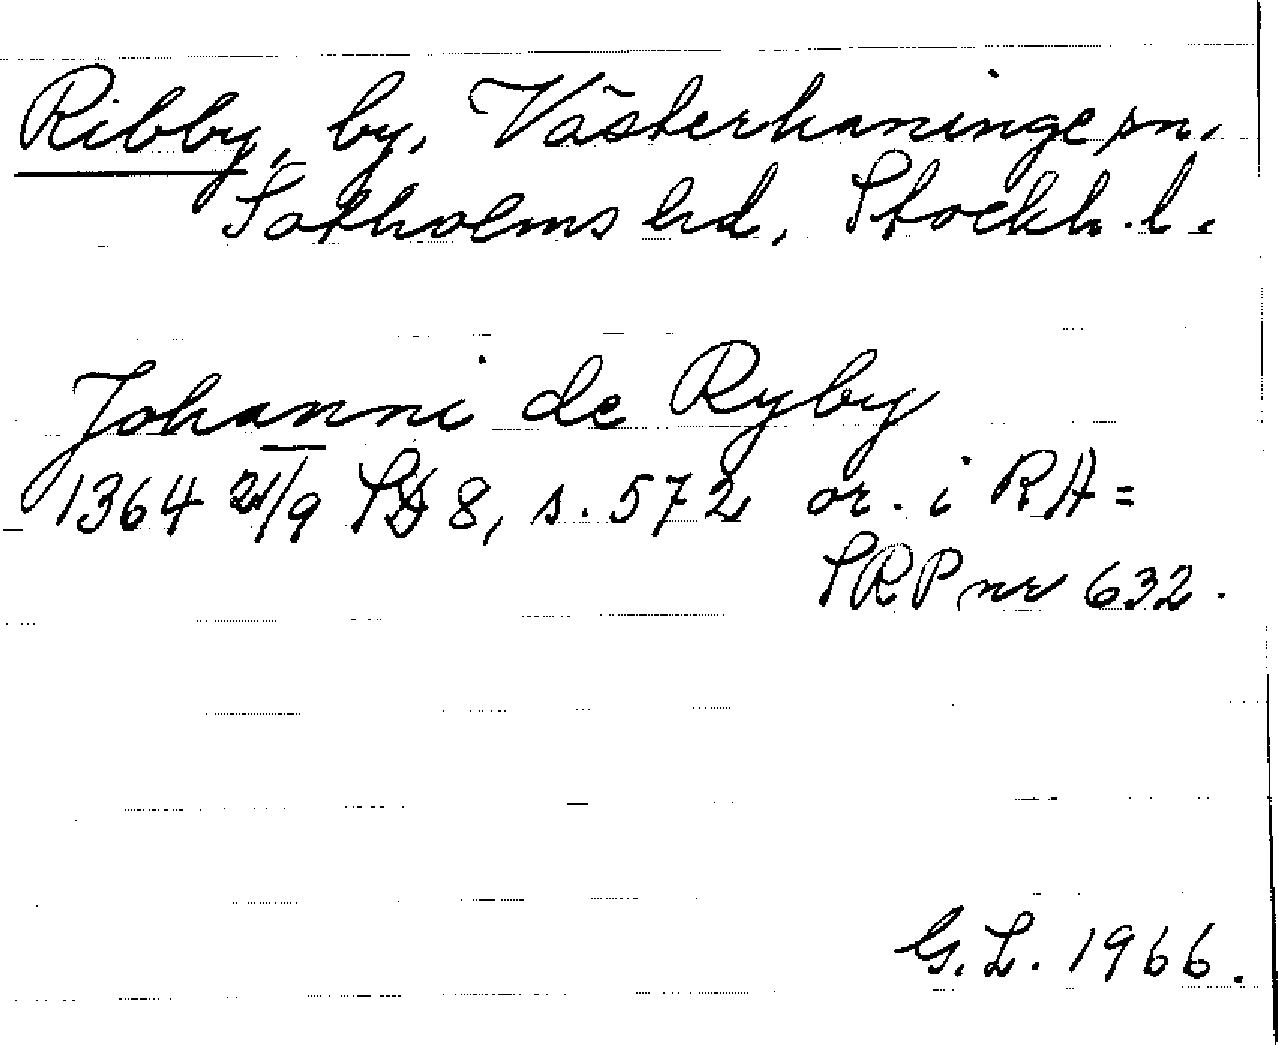 Ribby, by, Västerhaninge sn.
Sotholms hd, Stockh. l.
Johanni de Ryby
1364 21/9 SD 8, s. 572 or. i RA =
SRP nr 632.
G. L. 1966.